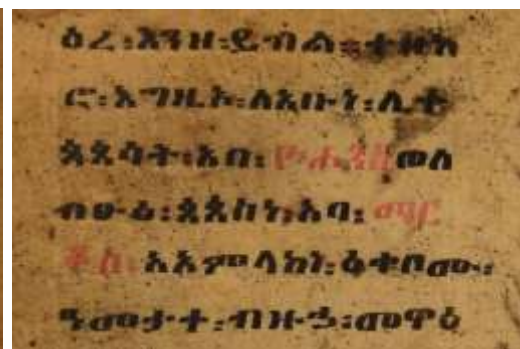 ዕረ፡እንዘ፡ይብል፡ተዘከ
ሮ፡እግዚኦ፡ለአቡነ፡ሊቀ
ጳጳሳት፡አባ፡ዮሐንስ ወለ
ብፁዕ፡ጳጳስነ፡አባ፡ማር
ቆስ፡አአምላክነ፡ዕቀቦሙ፡
ዓመታተ፡ብዙኃ፡ወዋዕ